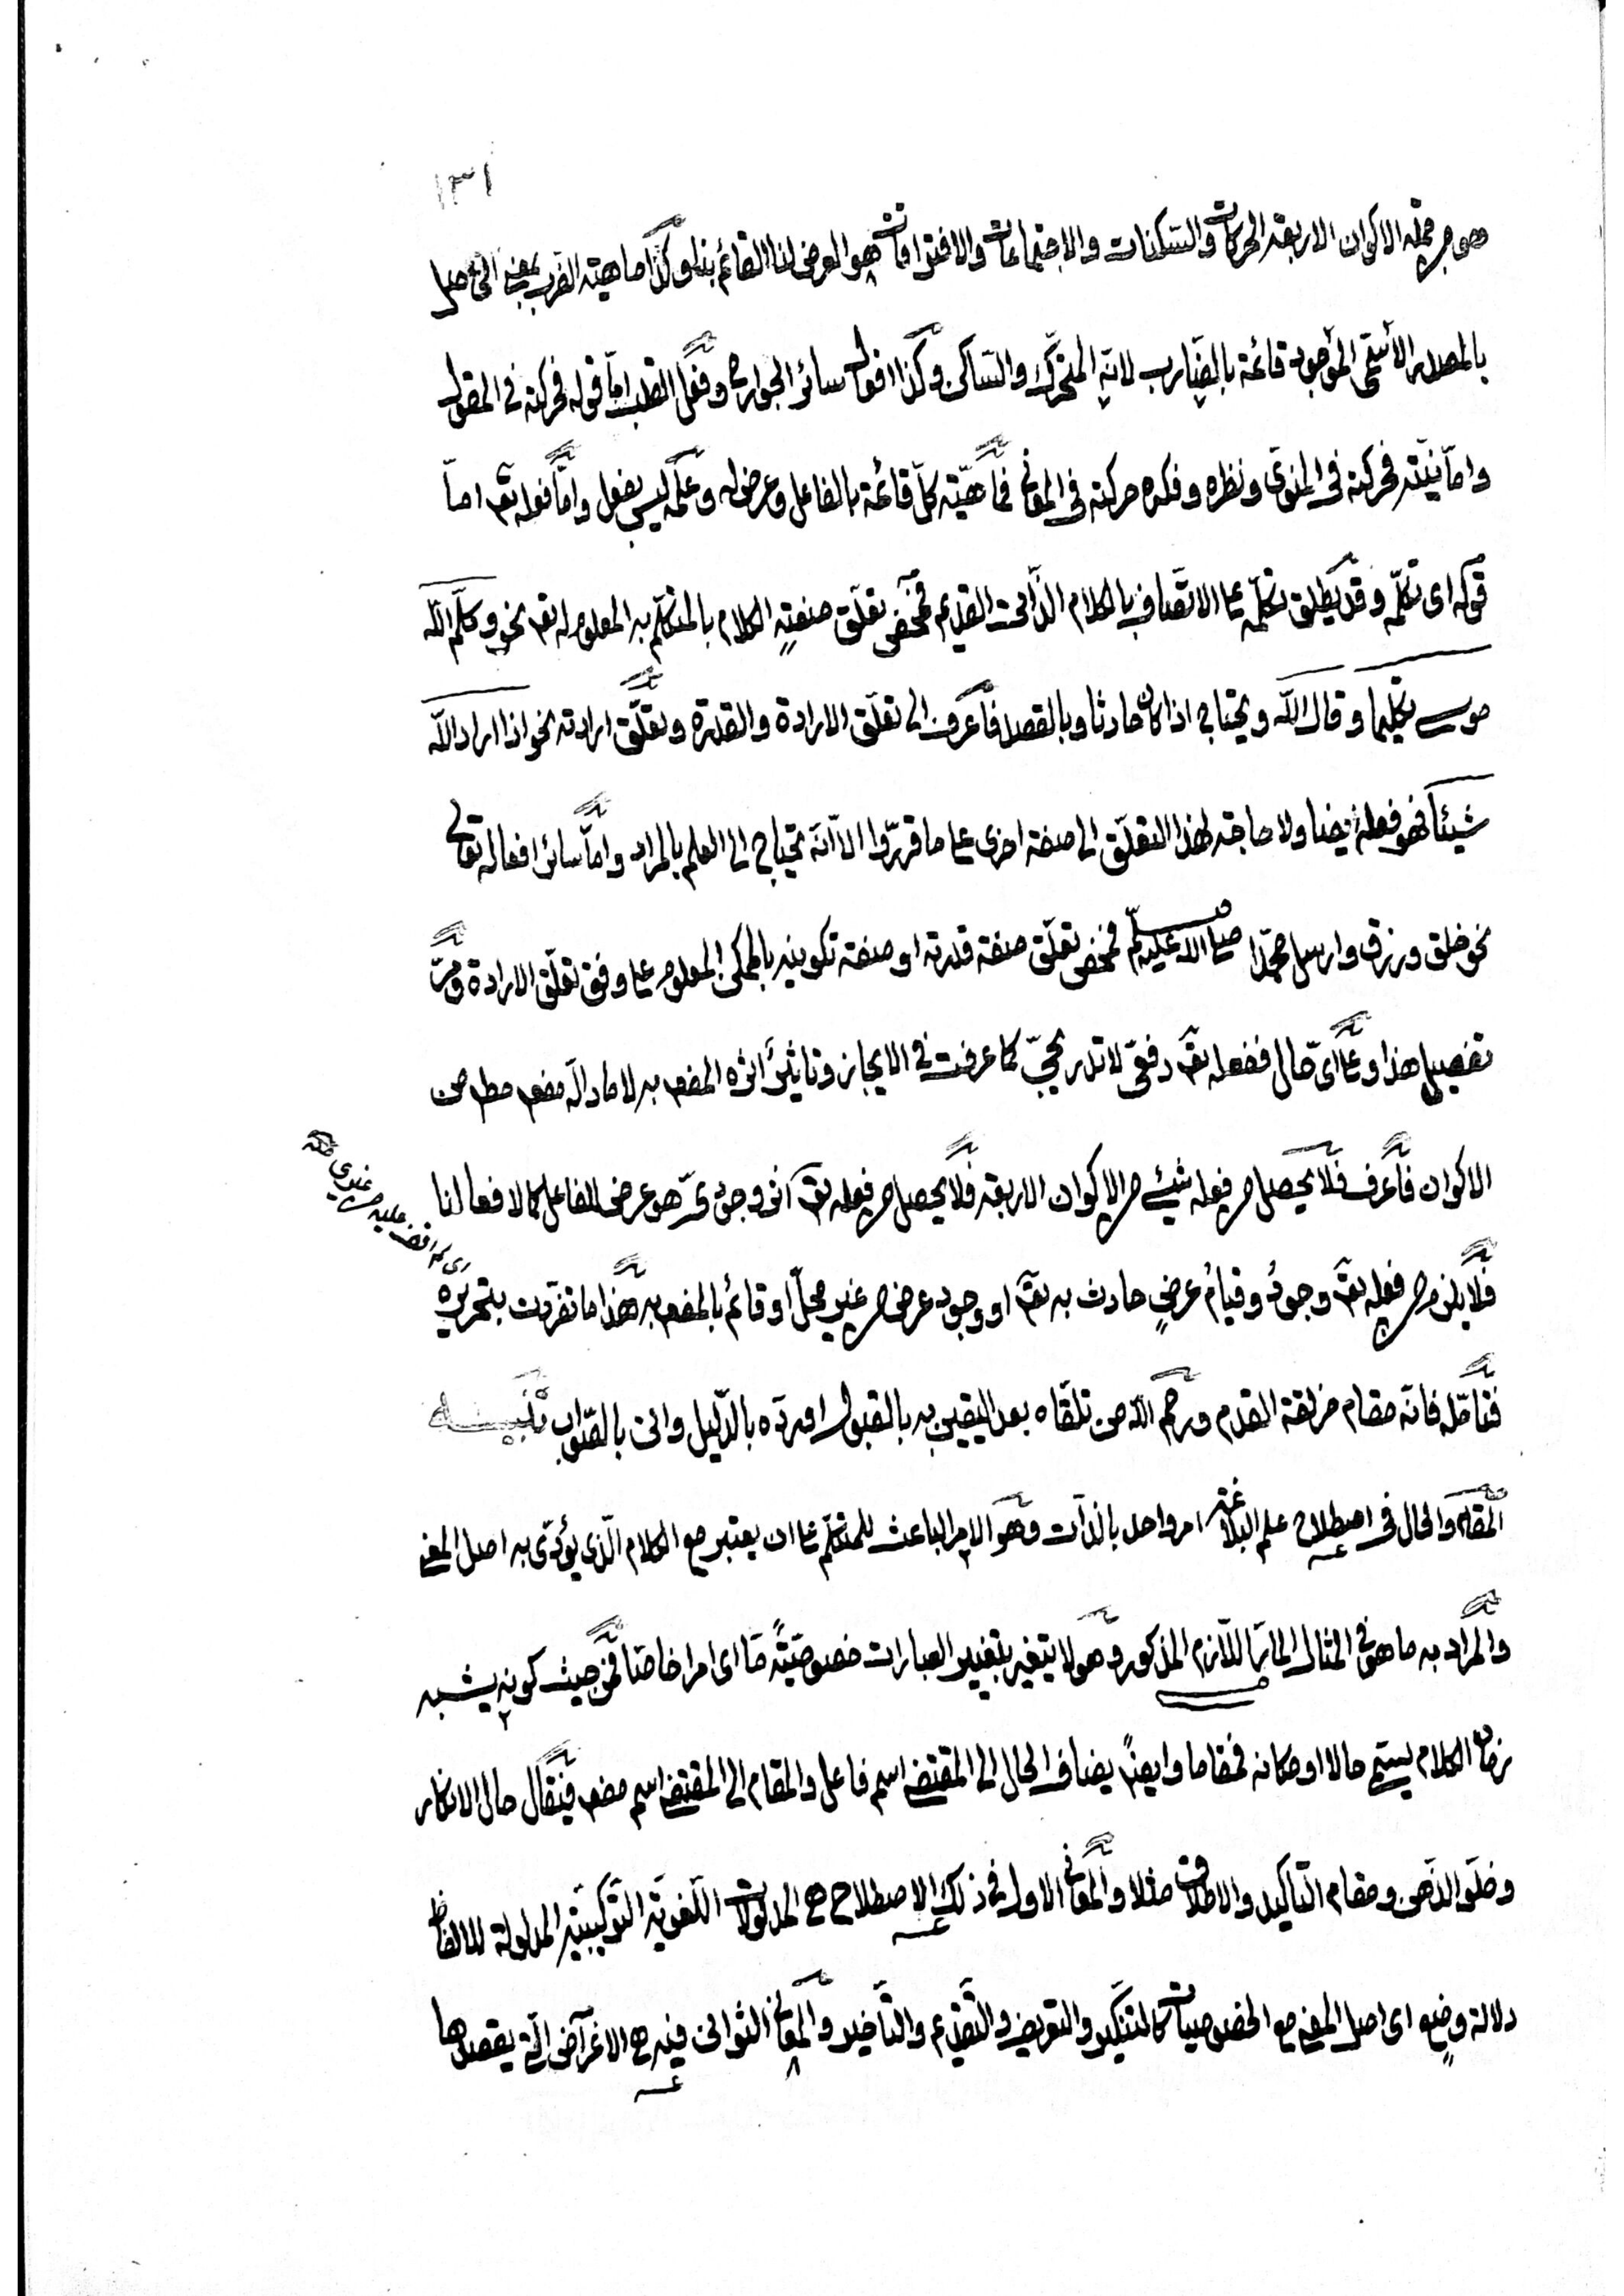 ١٣١
هو من جملة الاكوان الاربعة الحركات والسكنات والاجتماعات والافتراقات هو العرض لنا القائم بنا وكذا ماهية الضرب بمعنى الحاصل
بالمصدر الأينى الموجود قائمة بالضارب لانه المتحرك والساكن وكذا افعال سائر الجوارح وفعل القلب اما قوله فحركته في المقول
واما نيته فحركته في المنوى ونظره وفكره حركته في المعانى فماهية كل قائمة بالفاعل وعرض له وعلمه ليس بفعل واما فعله تعـ اما
قوله اى تكلمه وقد يطلق تكلمه على الاتصاف بالكلام الذاتى القديم فمحض تعلق صفة الكلام بالمتكلم به المعلوم له تعـ نحو وكلم الله
موسى تكليما وقال الله ويحتاج اذا كان حادثا وبالقصد فاعرف الى تعلق الارادة والقدرة وتعلق ارادته نحو اذا اراد الله
شيئا فهو فعله ايضا ولا حاجة لهذا التعلق الى صفة اخرى على ما قرروا الا انه يحتاج الى العلم بالمراد واما سائر افعاله تعالى
نحو خلق ورزق وارسل محمدا صلى الله عليه وسلم فمحض تعلق صفة قدرته او صفة تكوينه بالممكن المعلوم على وفق تعلق الارادة ومر
تفصيل هذا وعلى اى حال ففعله تعـ دفعى لا تدريجى كما عرفت في الايجاز وتاثير اثره المفعـ به لا ما دل له مفعـ مطـ من
الاكوان فاعرف فلا يحصل من فعله شيئ من الاكوان الاربعة فلا يحصل من فعله تعـ اثر وجودى هو عرض للفاعل كالافعال لنا
فلا يلزم من فعله تعـ وجود وقيام عرض حادث به تعـ او وجود عرض من غير محل او قائم بالمفعـ به هذا ما تفردت بتحريره
فتامله فانه مقام مزلقة القدم ورحم الله من تلقاه بعد اليقين به بالقبول او رده بالدليل واتى بالصواب تنبيه
المقام والحال في اصطلاح علم البلاغة امر واحد بالذات وهو الامر الباعث للمتكلم على ان يعتبر مع الكلام الذى يؤدى به اصل المعنى
والمراد به ما هو في المثال المار اللازم المذكور وهو لا يتغير بتغير العبارات خصوصية ما اى امرا خاصا فمن حيث كونه يشبه
زمان الكلام يسمى حالا او مكانه فمقاما وايضا يضاف الحال الى المقتضى اسم فاعل والمقام الى المقتضى اسم مفعـ فيقال حال الانكار
وخلو الذهن ومقام التأكيد والاطلاق مثلا والمعانى الاول في ذلك الاصطلاح هى المدلولات اللغوية التركيبية المدلولة للالفاظ
دلالة وضع اى اصل المعنى مع الخصوصيات كالتنكير والتعريف والتقديم والتأخير والمعانى الثوانى فيه هى الاغراض التى يقصدها